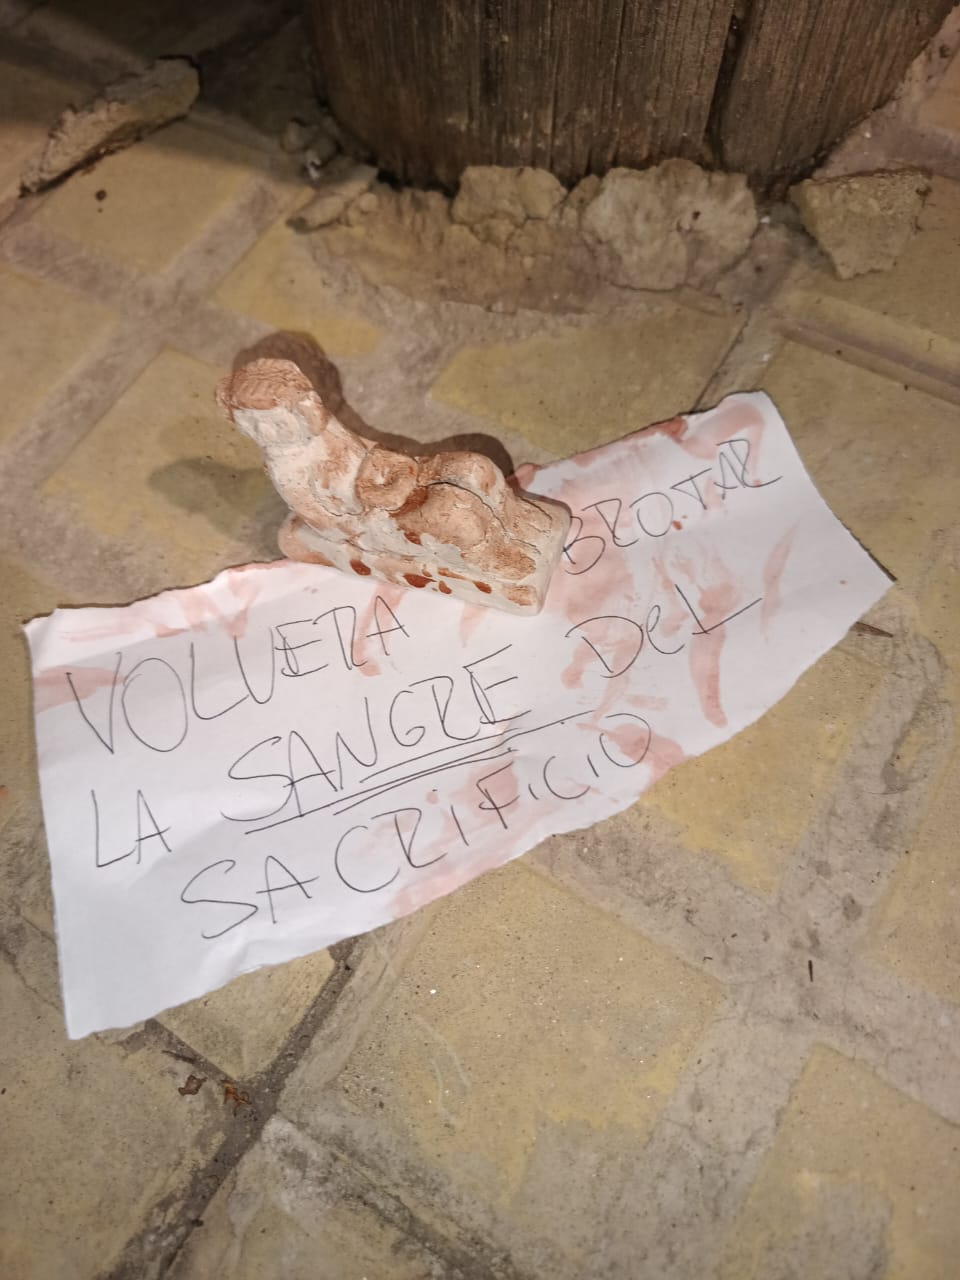 VOLVERA BROTAR
LA SANGRE DeL
SACRIFICIO